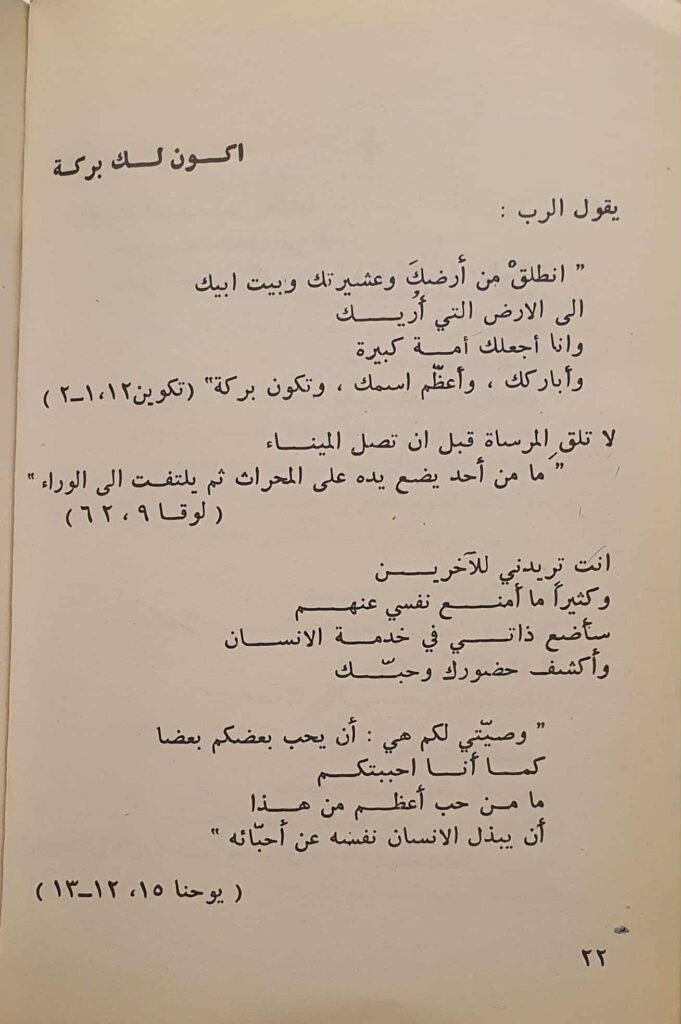 اكون لك بركة
يقول الرب :
" انطلقْ من أرضكَ وعشيرتك وبيت ابيك
الى الارض التي أُريك
وانا أجعلك أمة كبيرة
وأباركك ، وأعظّم اسمك ، وتكون بركة" (تكوين١،١٢-٢ )
لا تلقِ المرساة قبل ان تصل الميناء
" ما من أحد يضع يده على المحراث ثم يلتفت الى الوراء "
( لوقا ٩ ، ٦٢ )
انت تريدني للآخرين
وكثيراً ما أمنع نفسي عنهم
سأضع ذاتي في خدمة الانسان
وأكشف حضورك وحبّك
" وصيّتي لكم هي : أن يحب بعضكم بعضا
كما أنا احببتكم
ما من حب أعظم من هذا
أن يبذل الانسان نفسه عن أحبّائه "
( يوحنا ١٥، ١٢-١٣ )
٢٢